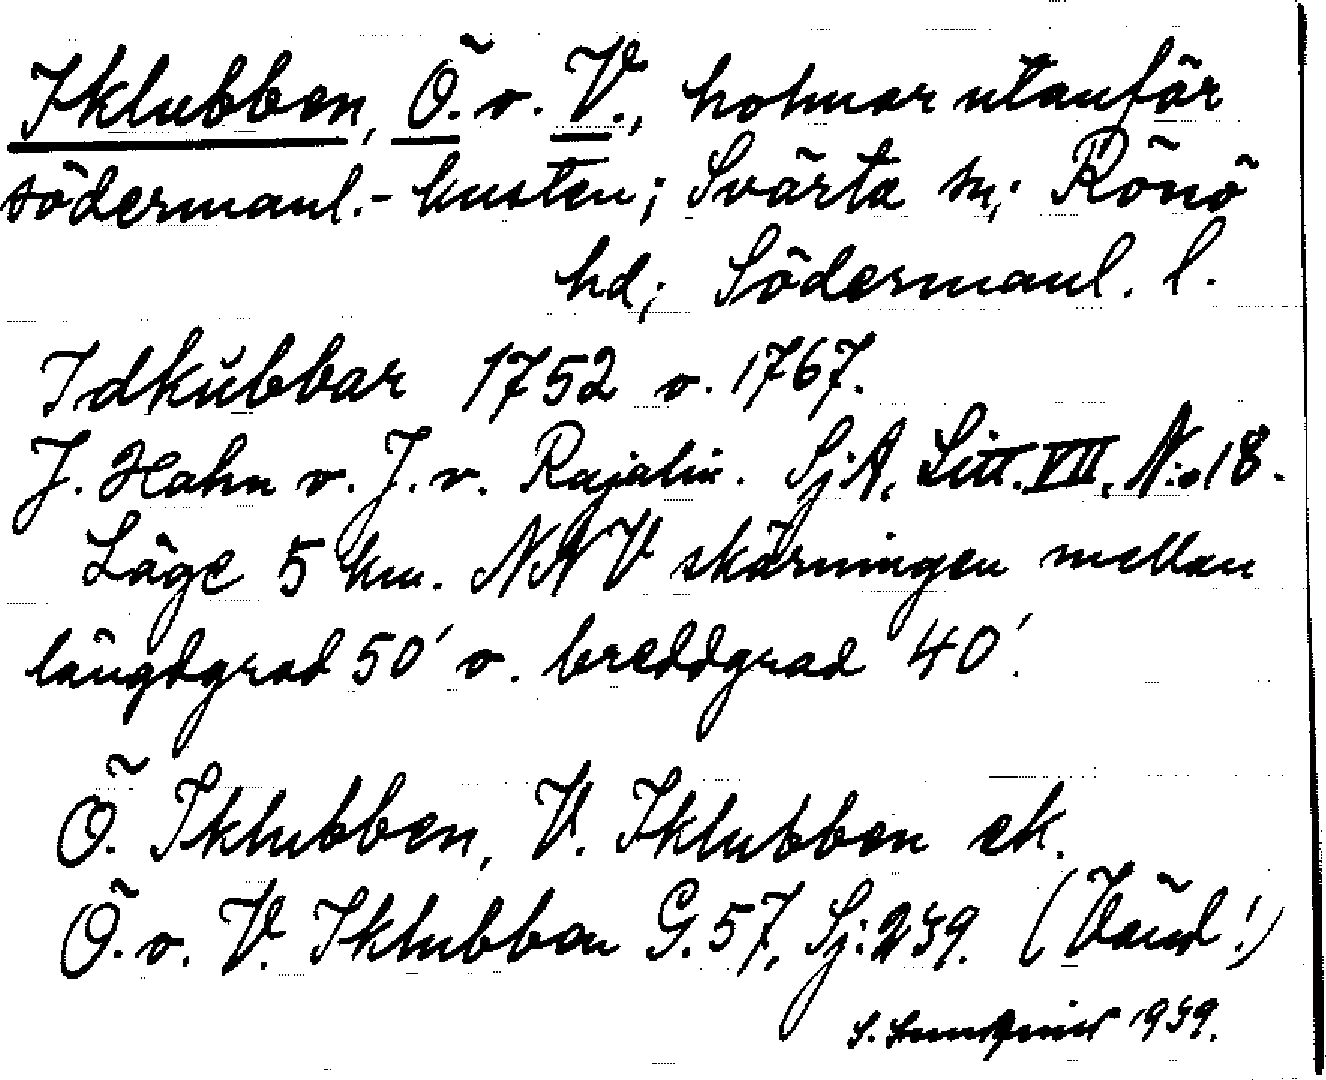 Iklubben, Ö. o. V., holmar utanför
södermanl.- kusten; Svärta sn; Rönö
hd; Södermanl. l.
Idkubbar 1752 o. 1767.
J. Hahn o. J. v. Rajalin. SjA, Litt. VII, N:o 18.
Läge 5 km. NNV skärningen mellan
längdgrad 50′ o. breddgrad 40′.
Ö. Iklubben, V. Iklubben ek.
Ö. o. V. Iklubben G. 57, Sj: 239. (Vänd!)
1939.